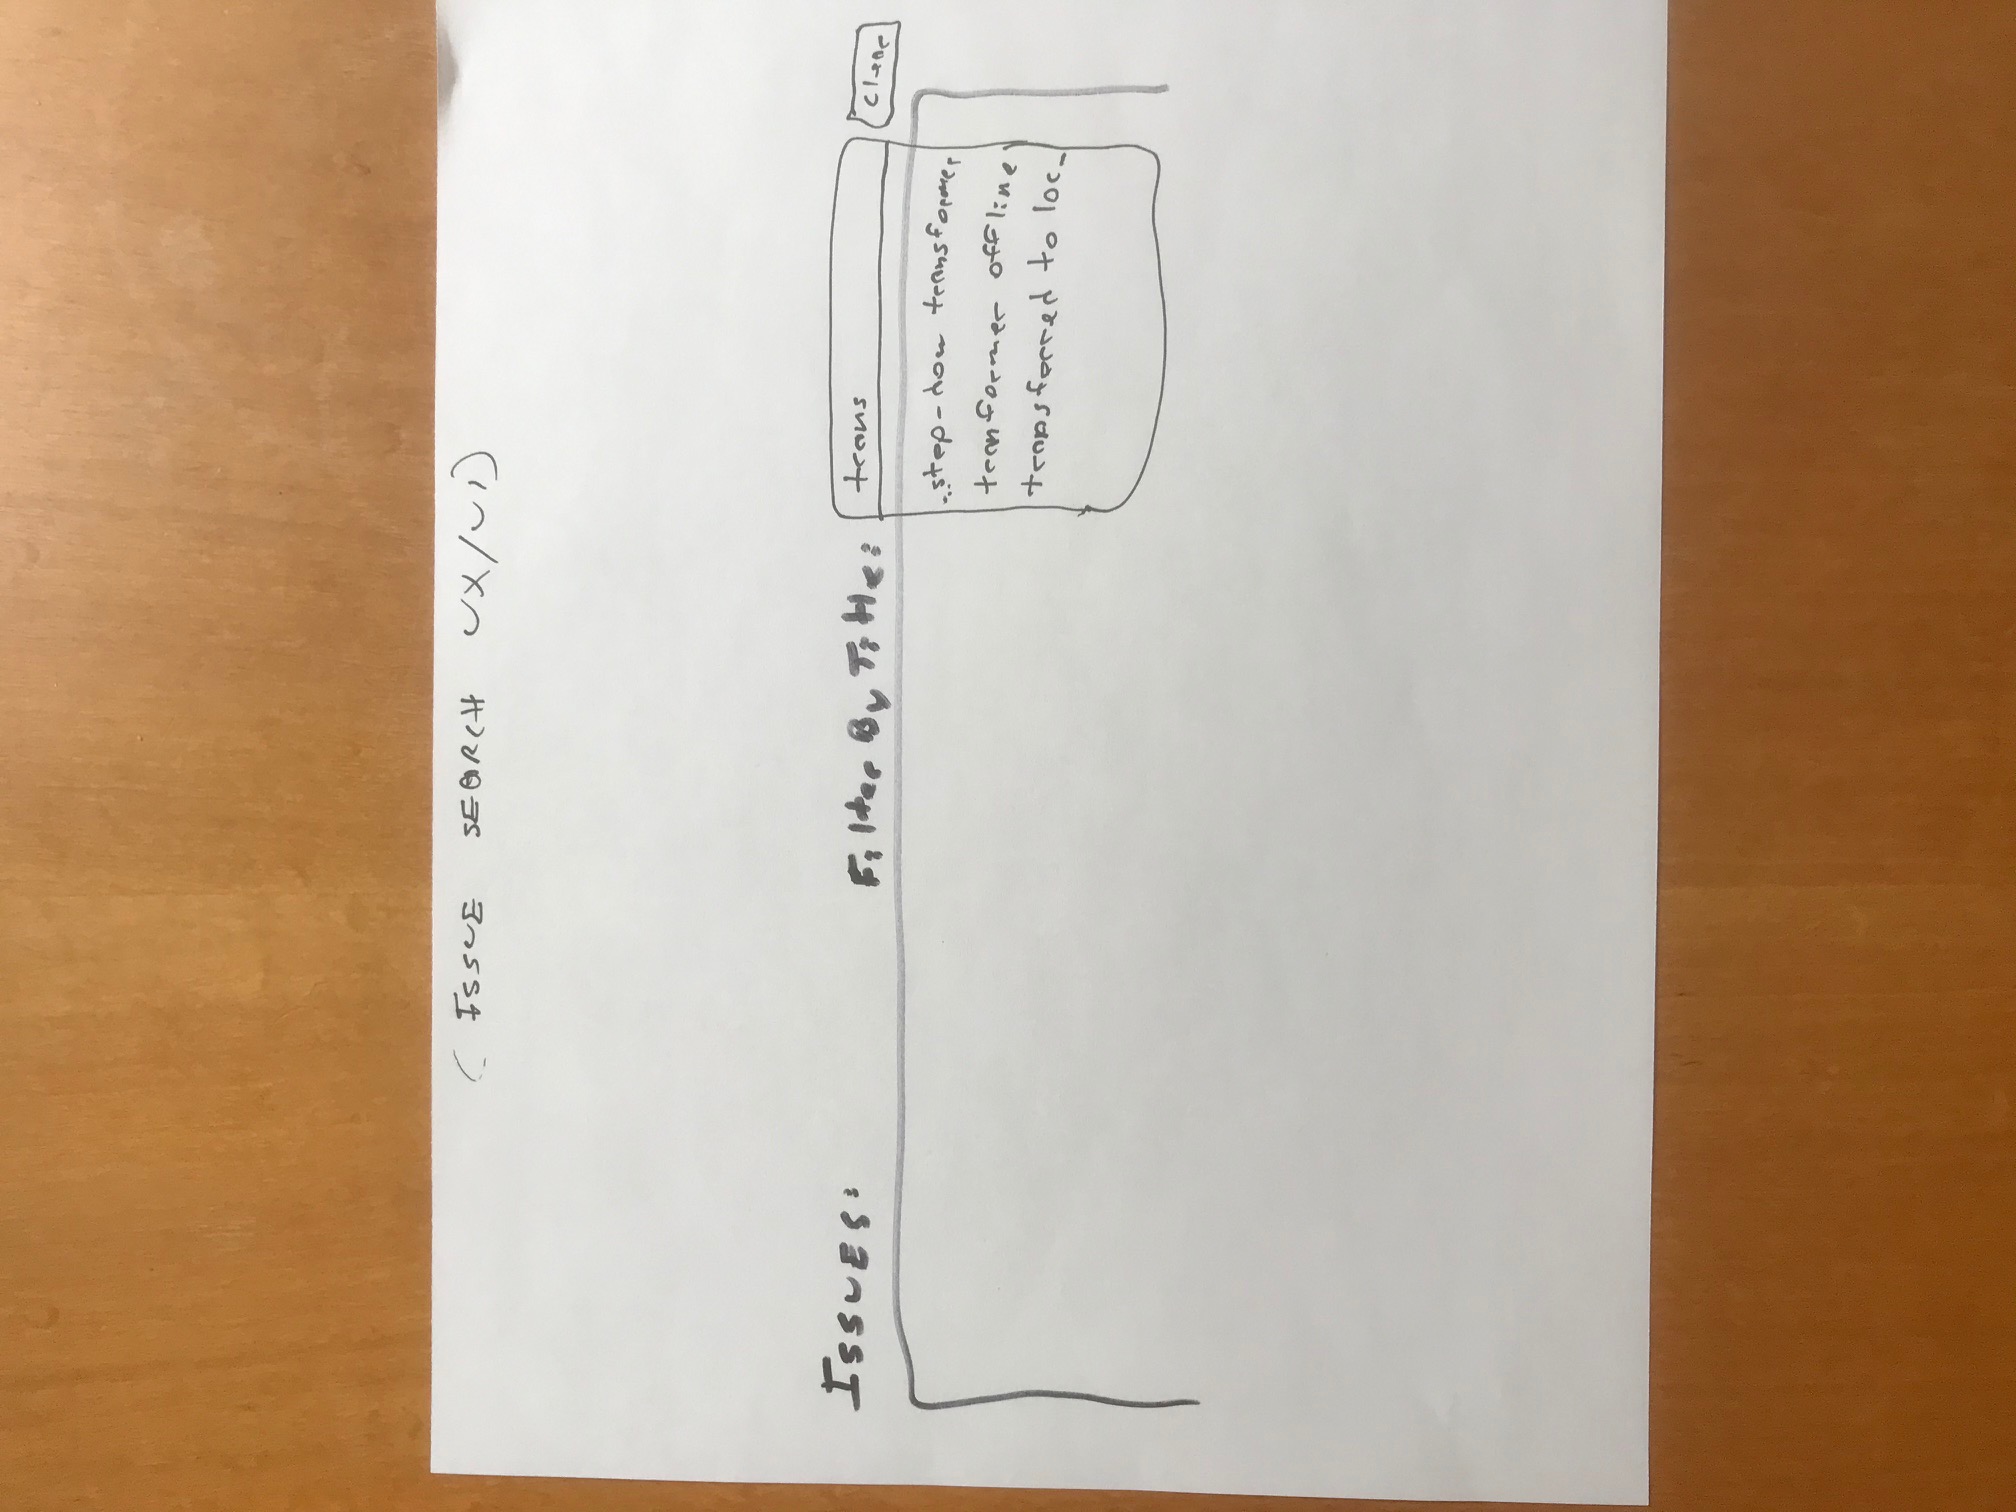 (ISSUE SEARCH UX/UI)
ISSUES: Filter By Title: trans Clear
...step-dow transformer
tranformer offline
transferred to loc_